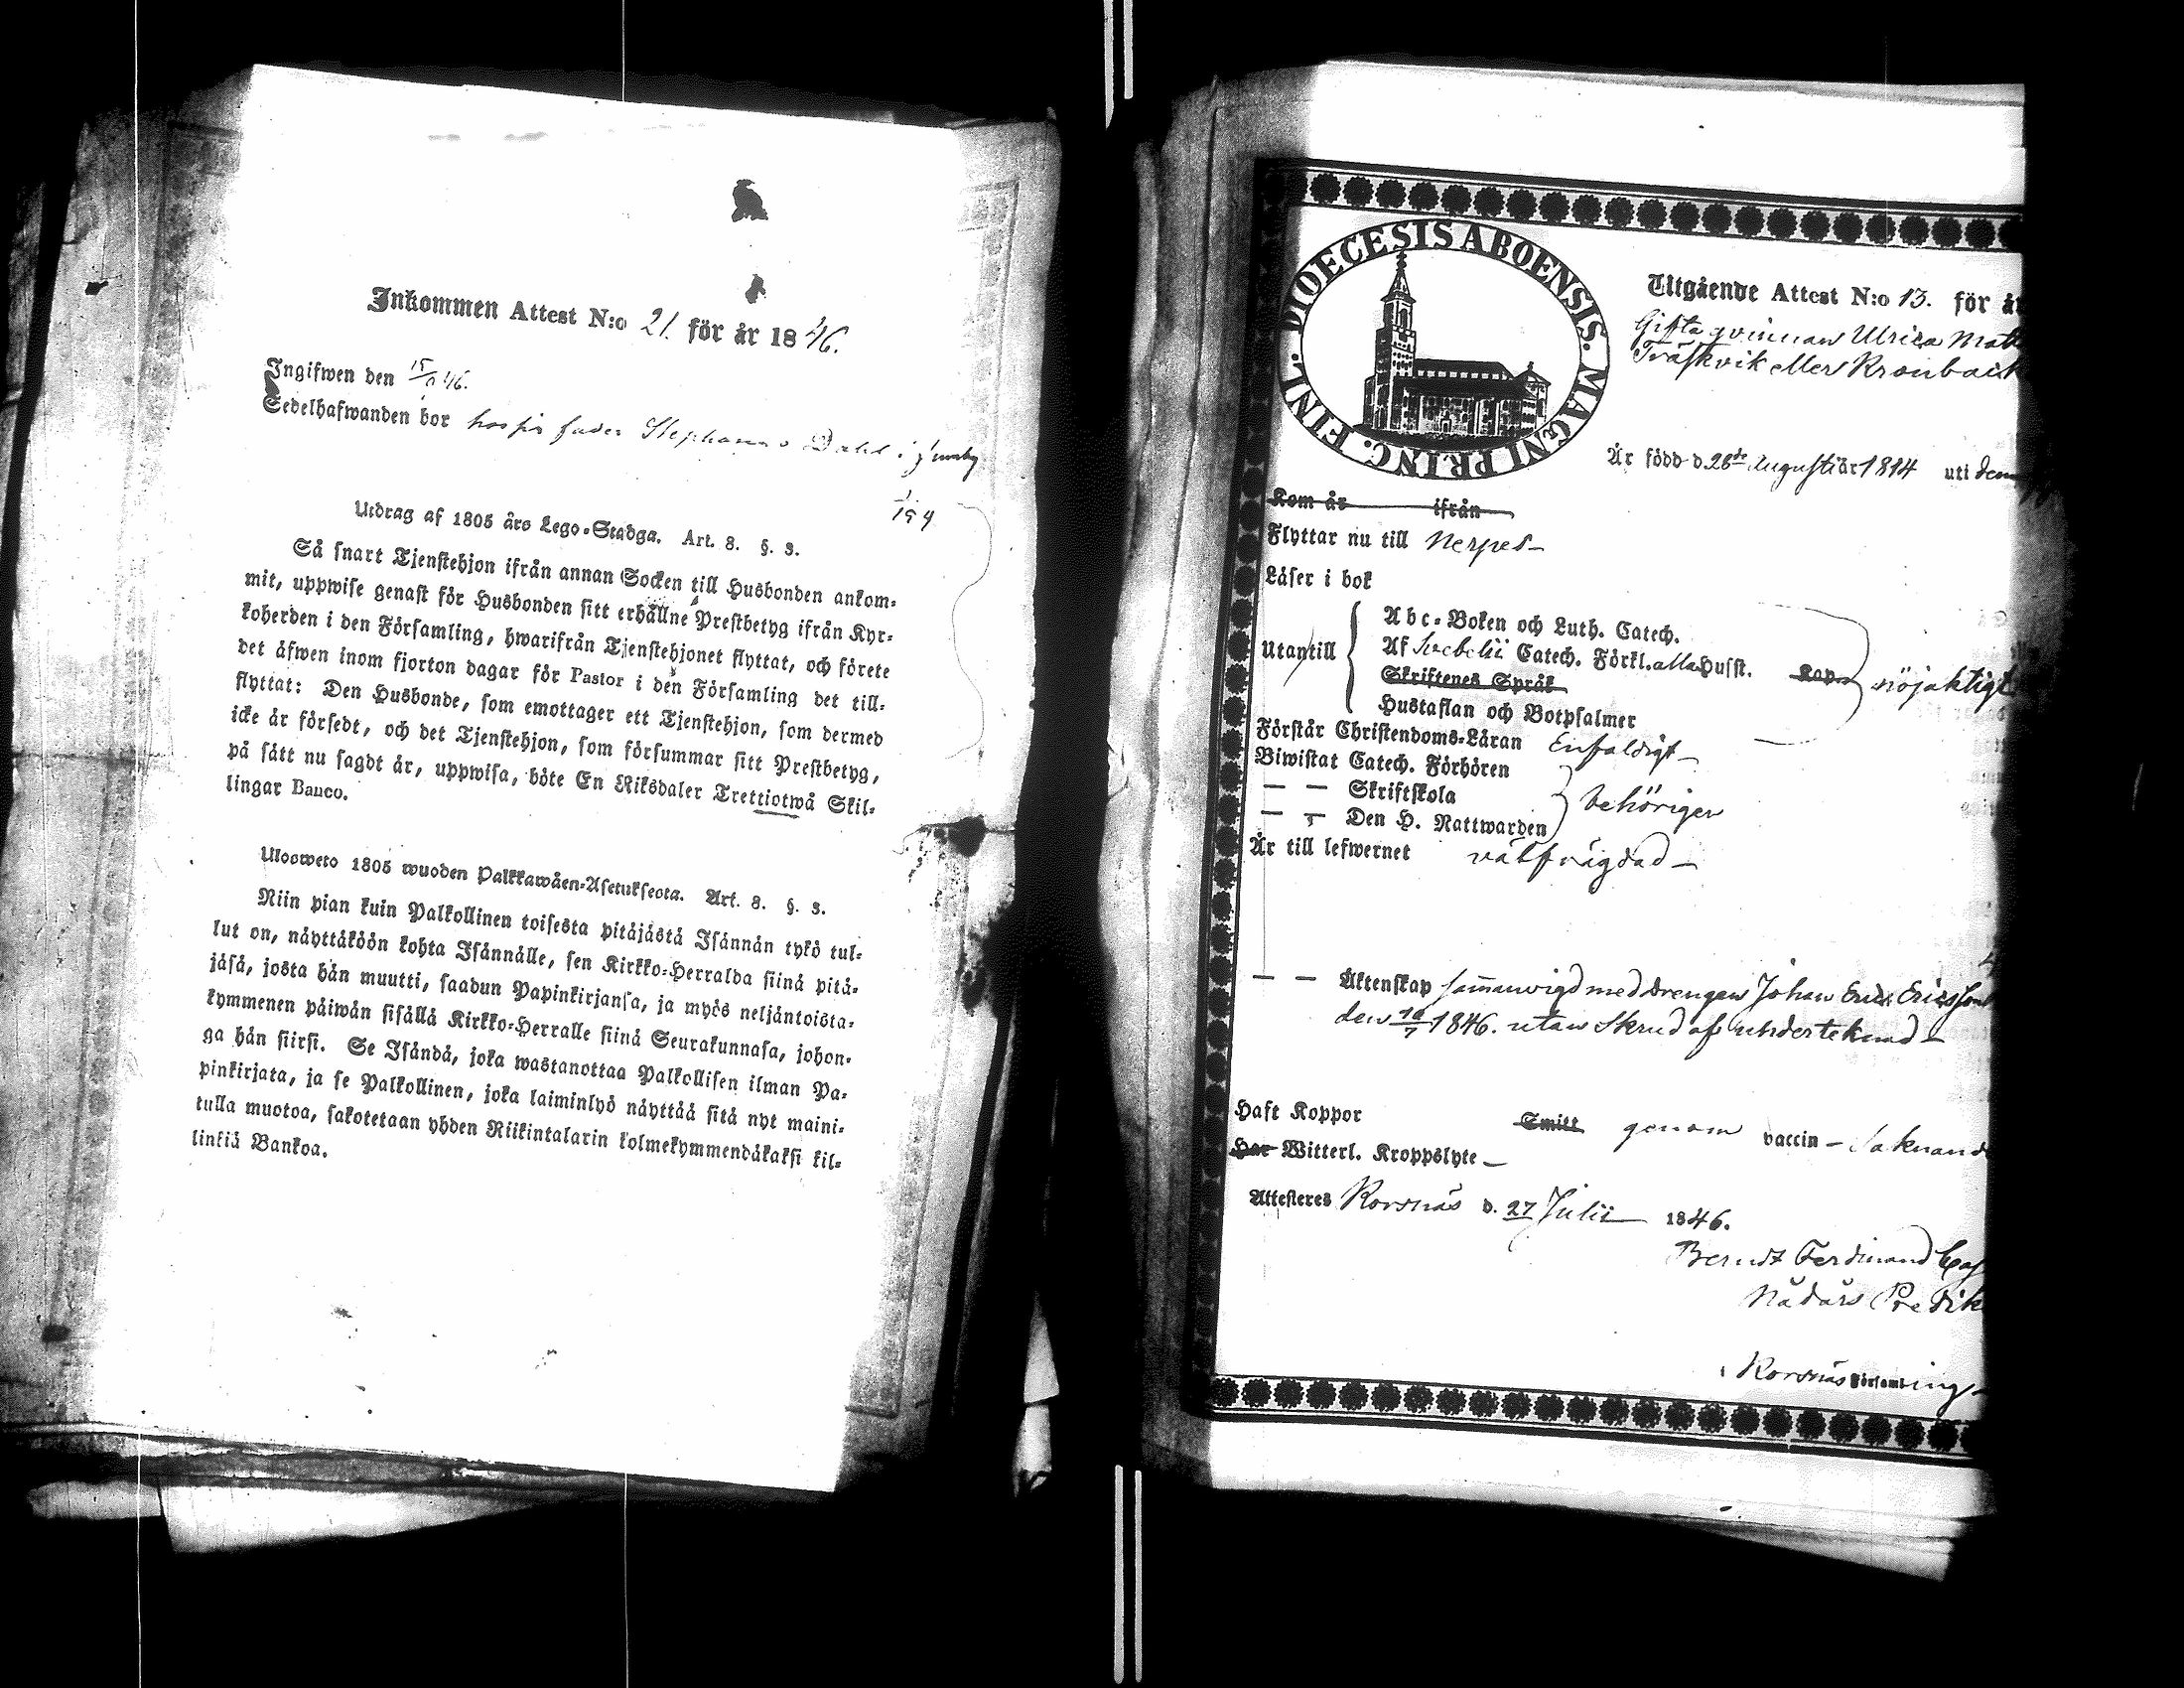 Inkommen Attest N:o 21. för år 1846.
Ingifwen den 15/9 46.
Sedelhafwanden bor hos sin fader Stephan Dahl i
194
Utdrag af 1805 års Lego-Stadga. Art. 8. §. 3.
Så snart Tjenstehjon ifrån annan Socken till Husbonden ankom-
mit, uppwise genast för Husbonden sitt erhållne Prestbetyg ifrån Kyr-
koherden i den Församling, hwarifrån Tjenstehjonet flyttat, och förete
det äfwen inom fjorton dagar för Pastor i den Församling det till-
flyttat: Den Husbonde, som emottager ett Tjenstehjon, som dermed
icke är försedt, och det Tjenstehjon, som försummar sitt Prestbetyg,
på sätt nu sagdt är, uppwisa, böte En Riksdaler Trettiotwå Skil-
lingar Banco.
Ulosweto 1805 wuoden Palkkawäen-Asetuksesta. Art. 8. §. 3.
Niin pian kuin Palkollinen toisesta pitäjästä Isännän tykö tul-
lut on, näyttäköön kohta Isännälle, sen Kirkko-Herralda siinä pitä-
jäsä, josta hän muutti, saadun Papinkirjansa, ja myös neljäntoista-
kymmenen päiwän sisällä Kirkko-Herralle siinä Seurakunnasa, johon-
ga hän siirsi. Se Isändä, joka wastanottaa Palkollisen ilman Pa-
pinkirjata, ja se Palkollinen, joka laiminlyö näyttää sitä nyt maini-
tulla muotoa, sakotetaan yhden Riikintalarin kolmekymmendäkaksi kil-
linkiä Bankoa.
DIOECESIS ABOENSIS. MAGNI PRINC. FINL.
Utgående Attest N:o 13. för år
Gifta qvinnan Ulrica Mat
Träskvik eller Kronback
Är född d. 28de Augusti år 1814 uti den
Kom år ifrån
Flyttar nu till Nerpes
Läser i bok
Abc-Boken och Luth. Catech.
Utantill Af Svebelii Catech. Förkl. alla Husst. Kap. nöjaktigt
Skriftenes Språk
Hustaflan och Botpsalmer
Förstår Christendoms-Läran Enfaldigt
Biwistat Catech. Förhören
— — Skriftskola behörigen
— — Den H. Nattwarden
Är till lefwernet välfrägdad
— — Äktenskap sammanvigd med drengen Johan Erik Ericsson
den 10/7 1846. utan Skrud af undertecknad
Haft Koppor Smitt genom vaccin — Saknand
Har Witterl. Kroppslyte
Attesteres Korsnäs d. 27 Julii 1846.
Berndt Ferdinand
Nådårs Predik
i Korsnäs Församling